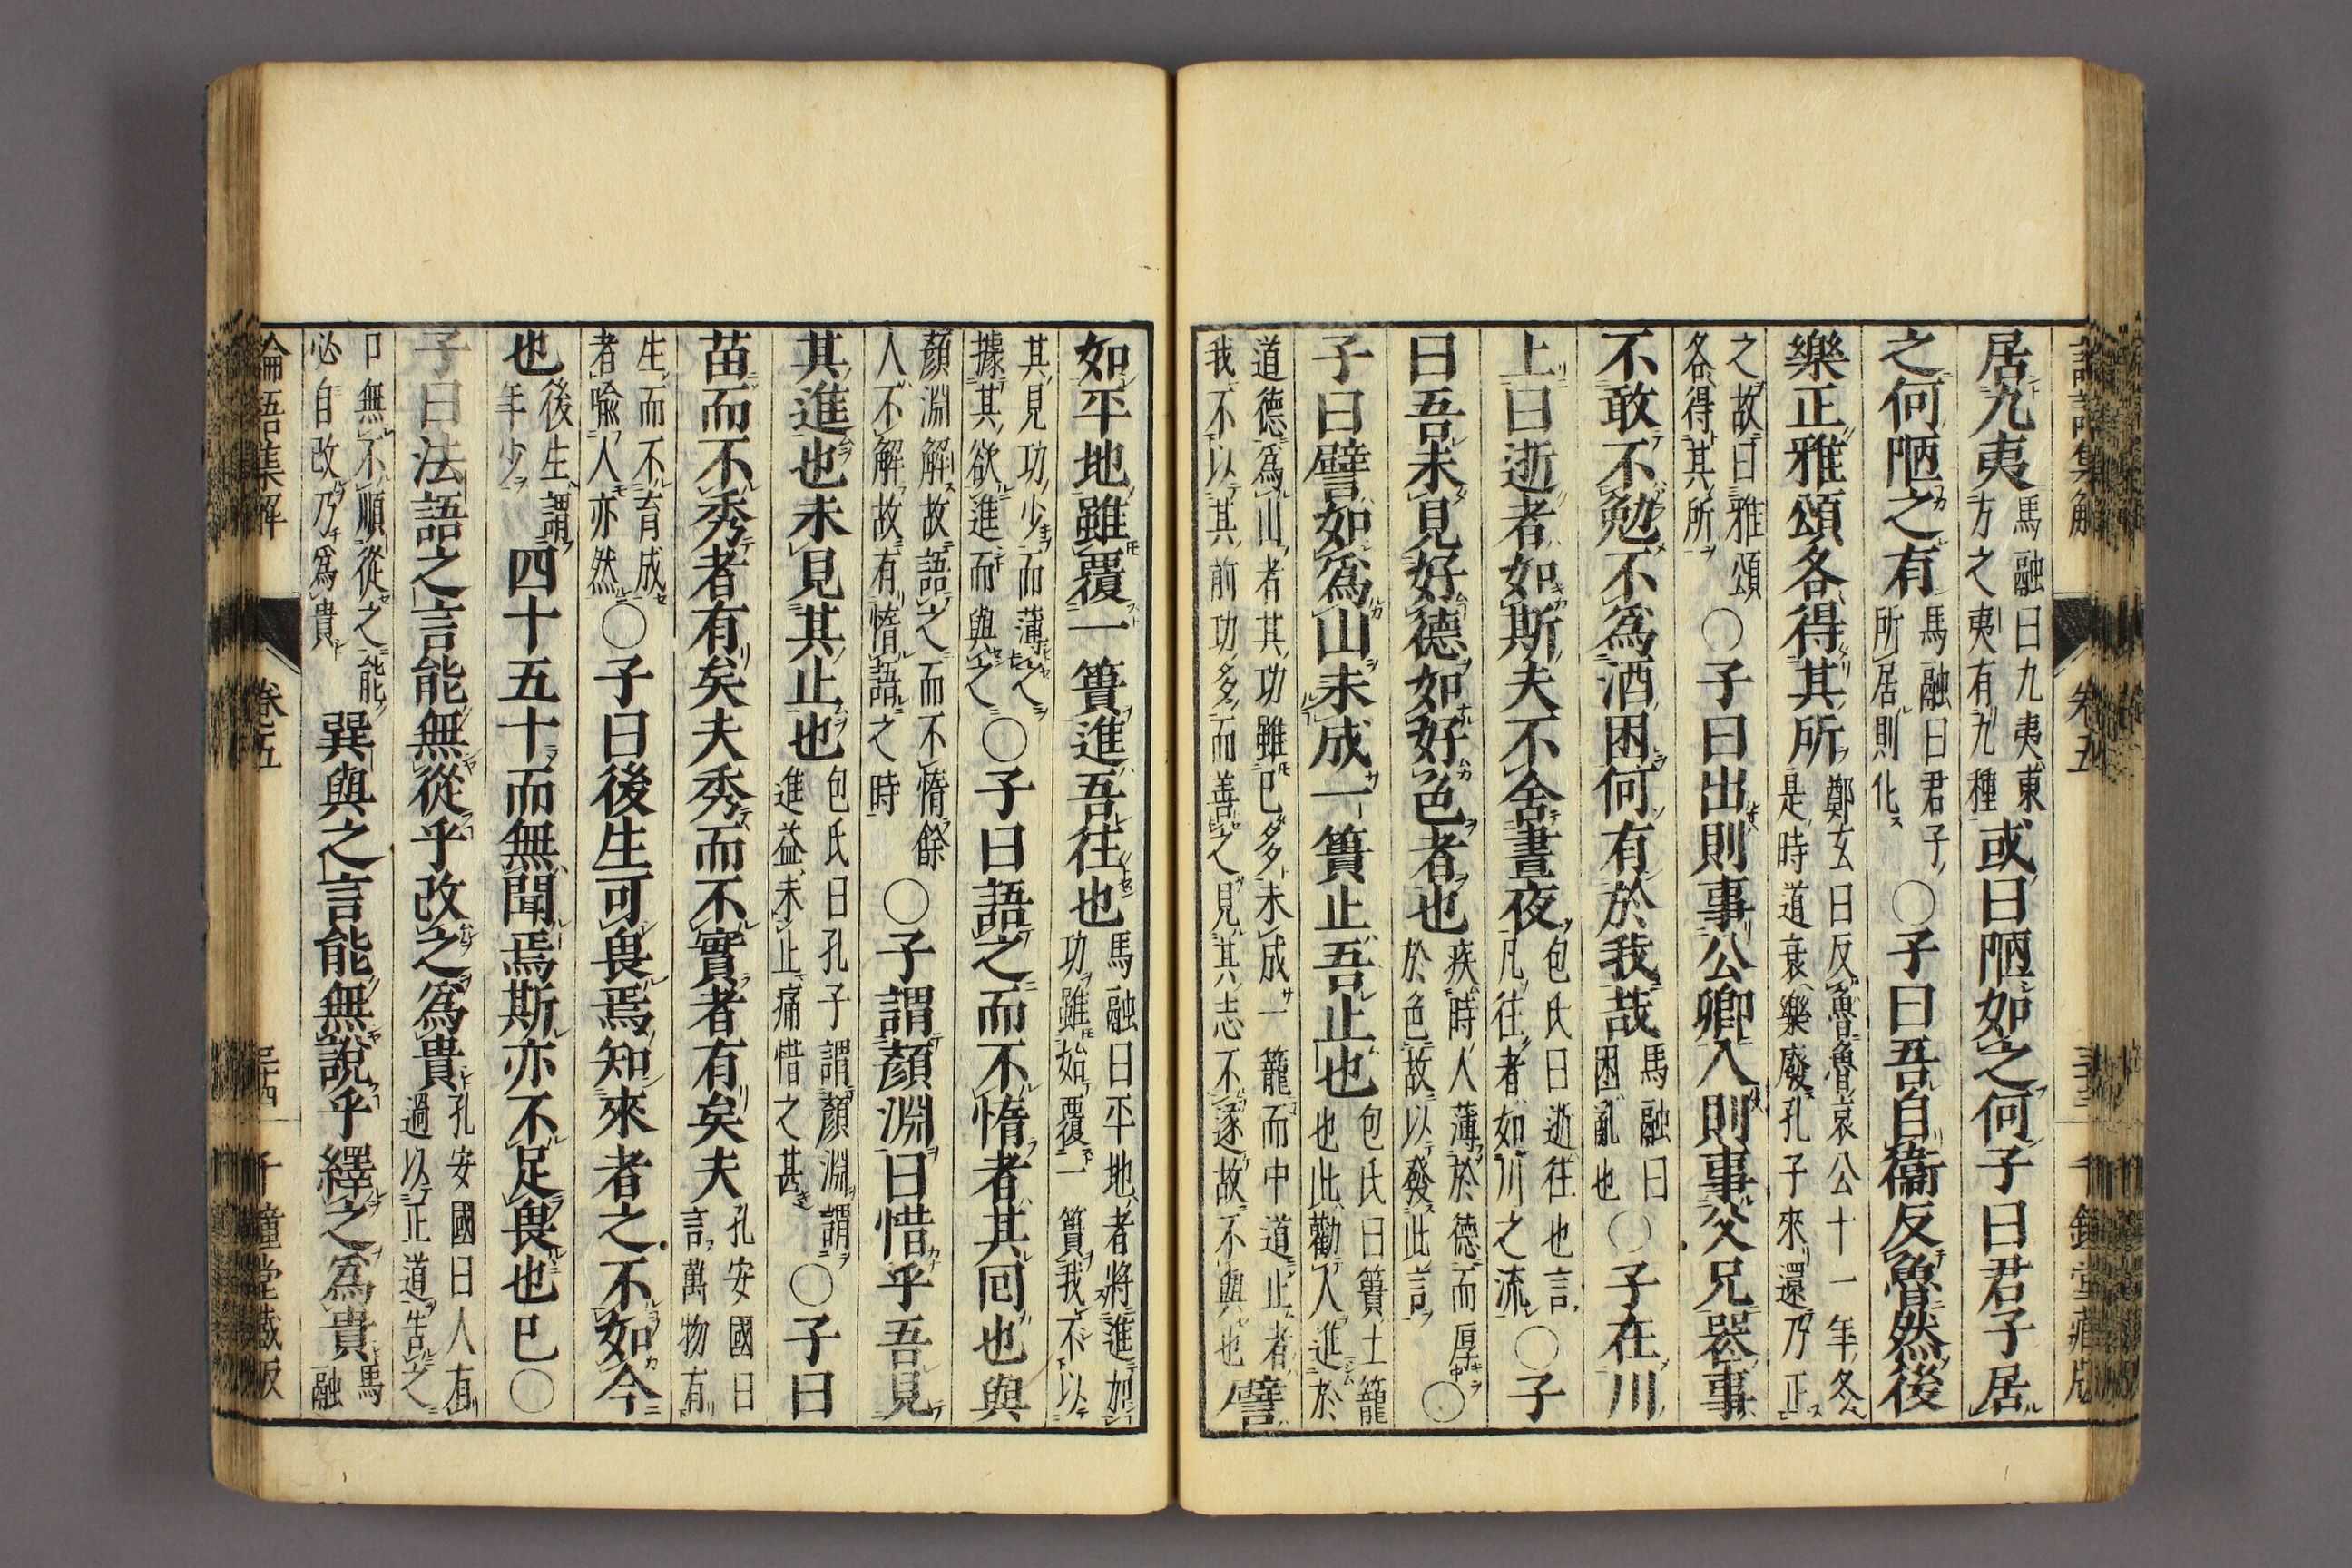 居九夷馬融曰九夷東方之夷有九種或曰陋如之何子曰君子居
之何陋之有馬融曰君子所居則化○子曰吾自衞反魯然後
樂正雅頌各得其所鄭玄曰反魯魯哀公十一年冬是時道衰樂廢孔子來還乃正
之故曰雅頌各得其所○子曰出則事公卿入則事父兄喪事
不敢不勉不爲酒困何有於我哉馬融曰困亂也○子在川
上曰逝者如斯夫不舍晝夜包氏曰逝往也言凡往者如川之流○子
曰吾未見好德如好色者也疾時人薄於德而厚於色故以發此言○
子曰譬如爲山未成一簣止吾止也包氏曰簣土籠也此勸人進於
道德爲山者其功雖已多未成一籠而中道止者我不以其前功多而善之見其志不遂故不與也譬
如平地雖覆一簣進吾往也馬融曰平地者將進加功雖始覆一簣我不以
其見功少而薄之據其欲進而與之○子曰語之而不惰者其囘也與
顏淵解故語之而不惰餘人不解故有惰語之時○子謂顏淵曰惜乎吾見
其進也未見其止也包氏曰孔子謂顏淵進益未止痛惜之甚○子曰
苗而不秀者有矣夫秀而不實者有矣夫孔安國曰言萬物有
生而不育成者喩人亦然○子曰後生可畏焉知來者之不如今
也後生謂年少四十五十而無聞焉斯亦不足畏也已○
子曰法語之言能無從乎改之爲貴孔安國曰人有過以正道告之
口無不順從之能必自改乃爲貴巽與之言能無說乎繹之爲貴馬融
論語集解 卷五 千鍾堂藏版